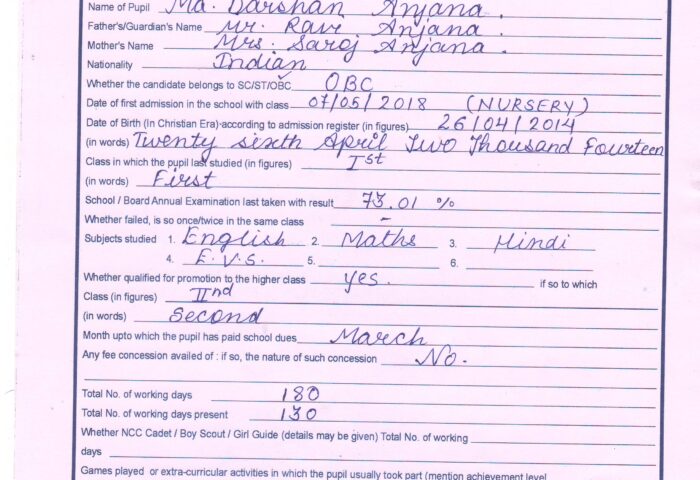 Name of Pupil Md. Darshan Anjana.
Father's/Guardian's Name Mr. Ravi Anjana.
Mother's Name Mrs. Saroj Anjana.
Nationality Indian
Whether the candidate belongs to SC/ST/OBC OBC
Date of first admission in the school with class 07/05/2018 (NURSERY)
Date of Birth (In Christian Era)-according to admission register (in figures) 26/04/2014
(in words) Twenty sixth April Two Thousand Fourteen
Class in which the pupil last studied (in figures) Ist
(in words) First
School / Board Annual Examination last taken with result 73.01 %
Whether failed, is so once/twice in the same class -
Subjects studied 1. English 2. Maths 3. Hindi
4. E.V.S. 5. 6.
Whether qualified for promotion to the higher class yes. if so to which
Class (in figures) IInd
(in words) Second
Month upto which the pupil has paid school dues March
Any fee concession availed of : if so, the nature of such concession No.
Total No. of working days 180
Total No. of working days present 130
Whether NCC Cadet / Boy Scout / Girl Guide (details may be given) Total No. of working
days
Games played or extra-curricular activities in which the pupil usually took part (mention achievement level